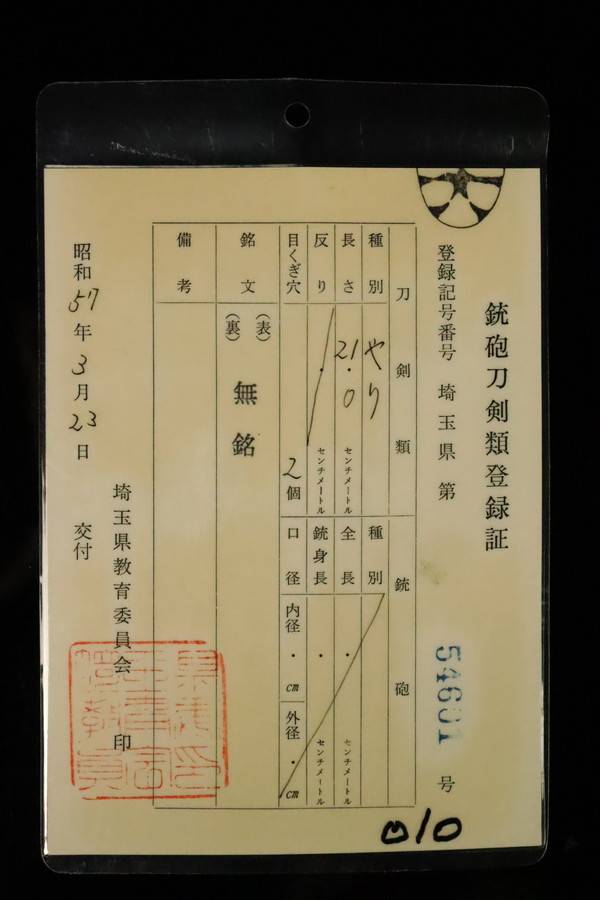 銃砲刀剣類登録証
登録記号番号 埼玉県第 54601 号
刀剣類
種別 やり
長さ 21.0 センチメートル
反り ・ センチメートル
目くぎ穴 2個
銘文 (表) 無銘
(裏)
備考
銃砲
種別
全長 ・ センチメートル
銃身長 ・ センチメートル
口径 内径 ・ cm 外径 ・ cm
昭和57年3月23日 交付
埼玉県教育委員会 印
010